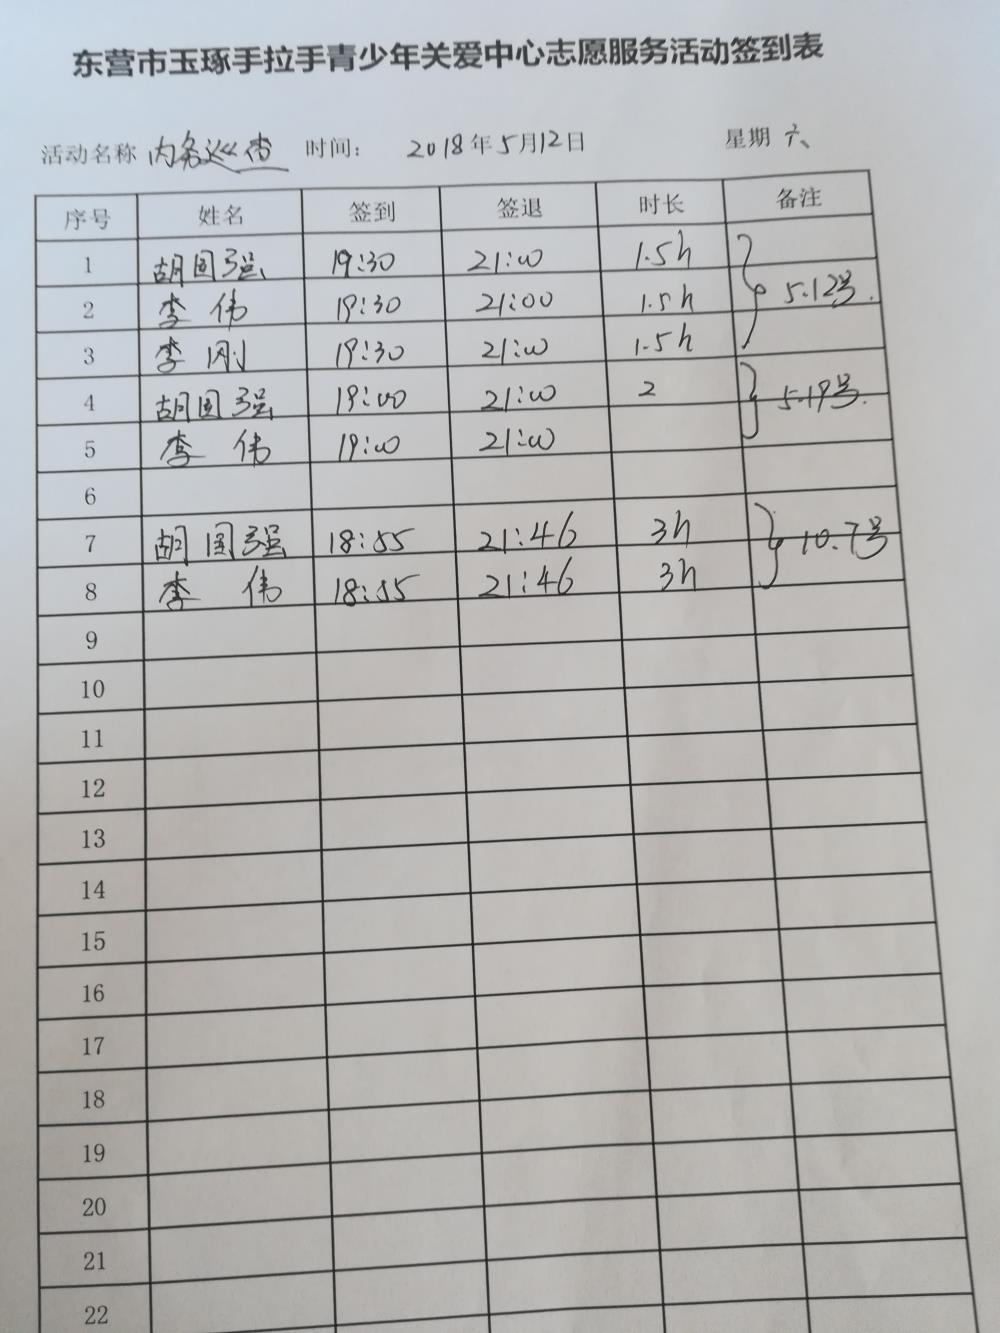 东营市玉琢手拉手青少年关爱中心志愿服务活动签到表
活动名称 内务巡查 时间: 2018年5月12日 星期 六
序号 姓名 签到 签退 时长 备注
1 胡国强 19:30 21:00 1.5h
2 李伟 19:30 21:00 1.5h 5.12号.
3 李刚 19:30 21:00 1.5h
4 胡国强 19:00 21:00 2 5.19号.
5 李伟 19:00 21:00
6
7 胡国强 18:55 21:46 3h 10.7号
8 李伟 18:55 21:46 3h
9
10
11
12
13
14
15
16
17
18
19
20
21
22